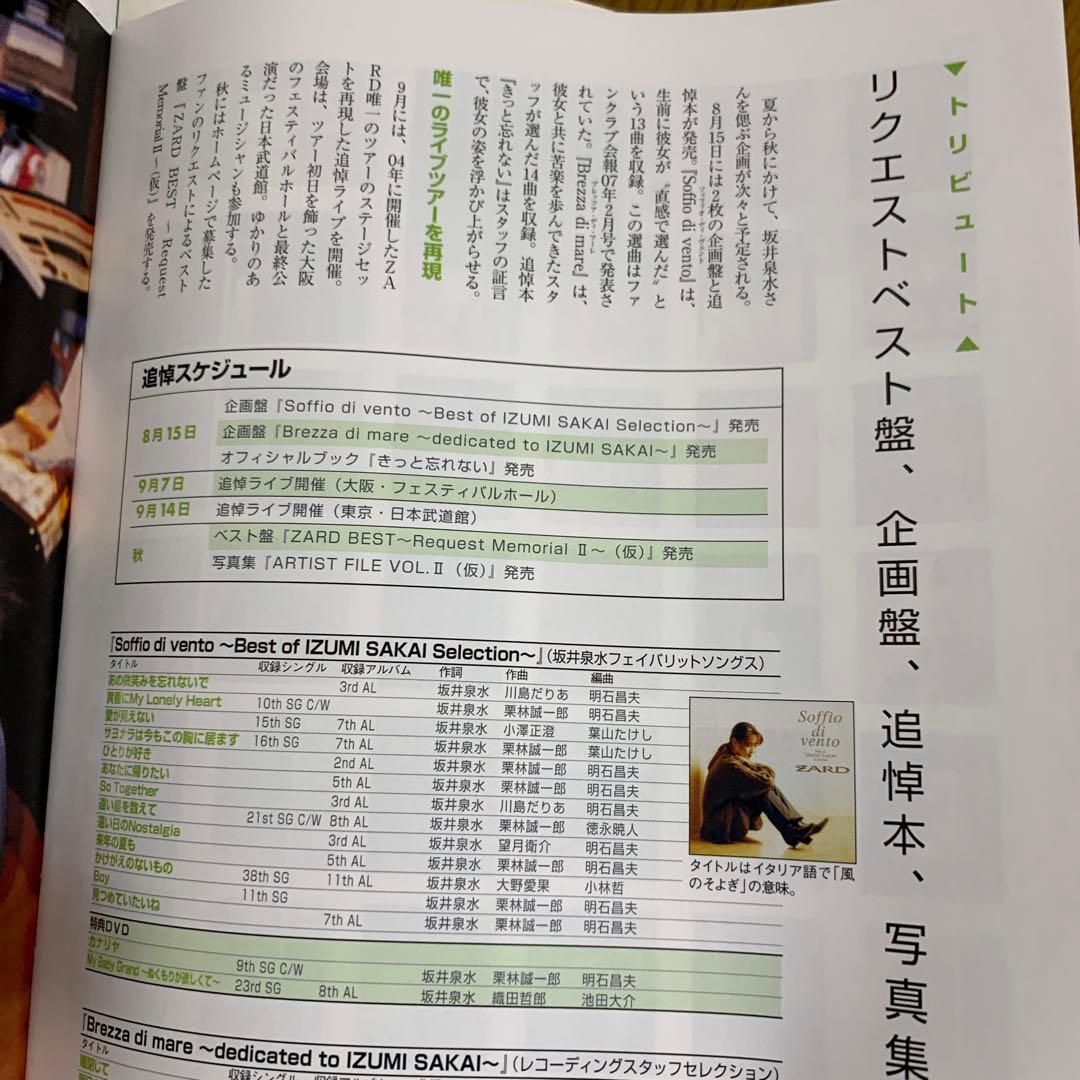 ▼トリビュート▲
リクエストベスト盤、企画盤、追悼本、写真集
夏から秋にかけて、坂井泉水さ
んを偲ぶ企画が次々と予定される。
8月15日には2枚の企画盤と追
悼本が発売。『Soffio di vento』は、
ソッフィオ・ディ・ヴェント
生前に彼女が〝直感で選んだ〟と
いう13曲を収録。この選曲はファ
ンクラブ会報07年2月号で発表さ
れていた。『Brezza di mare』は、
ブレッツァ・ディ・マーレ
彼女と共に苦楽を歩んできたスタ
ッフが選んだ14曲を収録。追悼本
『きっと忘れない』はスタッフの証言
で、彼女の姿を浮かび上がらせる。
唯一のライブツアーを再現
9月には、04年に開催したZA
RD唯一のツアーのステージセッ
トを再現した追悼ライブを開催。
会場は、ツアー初日を飾った大阪
のフェスティバルホールと最終公
演だった日本武道館。ゆかりのあ
るミュージシャンも参加する。
秋にはホームページで募集した
ファンのリクエストによるベスト
盤『ZARD BEST ～Request
Memorial Ⅱ～(仮)』を発売する。
追悼スケジュール
8月15日
企画盤『Soffio di vento ～Best of IZUMI SAKAI Selection～』発売
企画盤『Brezza di mare ～dedicated to IZUMI SAKAI～』発売
オフィシャルブック『きっと忘れない』発売
9月7日 追悼ライブ開催（大阪・フェスティバルホール）
9月14日 追悼ライブ開催（東京・日本武道館）
秋
ベスト盤『ZARD BEST～Request Memorial Ⅱ～（仮）』発売
写真集『ARTIST FILE VOL.Ⅱ（仮）』発売
『Soffio di vento ～Best of IZUMI SAKAI Selection～』（坂井泉水フェイバリットソングス）
タイトル 収録シングル 収録アルバム 作詞 作曲 編曲
あの微笑みを忘れないで 3rd AL 坂井泉水 川島だりあ 明石昌夫
黄昏にMy Lonely Heart 10th SG C/W 坂井泉水 栗林誠一郎 明石昌夫
愛が見えない 15th SG 7th AL 坂井泉水 小澤正澄 葉山たけし
サヨナラは今もこの胸に居ます 16th SG 7th AL 坂井泉水 栗林誠一郎 葉山たけし
ひとりが好き 2nd AL 坂井泉水 栗林誠一郎 明石昌夫
あなたに帰りたい 5th AL 坂井泉水 栗林誠一郎 明石昌夫
So Together 3rd AL 坂井泉水 川島だりあ 明石昌夫
遠い星を数えて 21st SG C/W 8th AL 坂井泉水 栗林誠一郎 徳永暁人
遠い日のNostalgia 3rd AL 坂井泉水 望月衛介 明石昌夫
来年の夏も 5th AL 坂井泉水 栗林誠一郎 明石昌夫
かけがえのないもの 38th SG 11th AL 坂井泉水 大野愛果 小林哲
Boy 11th SG 坂井泉水 栗林誠一郎 明石昌夫
見つめていたいね 7th AL 坂井泉水 栗林誠一郎 明石昌夫
特典DVD
カナリヤ 9th SG C/W 坂井泉水 栗林誠一郎 明石昌夫
My Baby Grand ～ぬくもりが欲しくて～ 23rd SG 8th AL 坂井泉水 織田哲郎 池田大介
Soffio
di
vento
ZARD
タイトルはイタリア語で「風
のそよぎ」の意味。
『Brezza di mare ～dedicated to IZUMI SAKAI～』（レコーディングスタッフセレクション）
タイトル
収録シングル